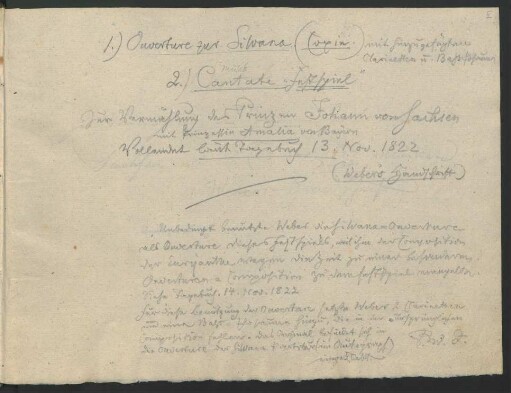 1.) Ouverture zur Silvana (Copie) mit hinzugefügten
Clarinetten u. Bassposaune
2.) nicht Cantate "Festspiel"
Zur Vermählung des Prinzen Johann von Sachsen
mit Prinzessin Amalia von Bayern
Vollendet laut Tagebuch 13. Nov. 1822
(Webers Handschrift)
Unbedingt benützte Weber die Silvana-Ouverture
als Ouverture dieses Festspiels, weil ihm der Composition
der Euryanthe wegen die Zeit zu einer besonderen
Ouverturen-Composition zu dem Festspiel mangelte
Siehe Tagebuch 14. Nov. 1822
Für diese Benützung der Ouverture setzte Weber 2 Clarinetten
und eine Bass-Posaune hinzu, die in der ursprünglichen
Composition fehlen. Das Original befindet sich in
die Ouverture der Silvana Autograph
F. W. J.